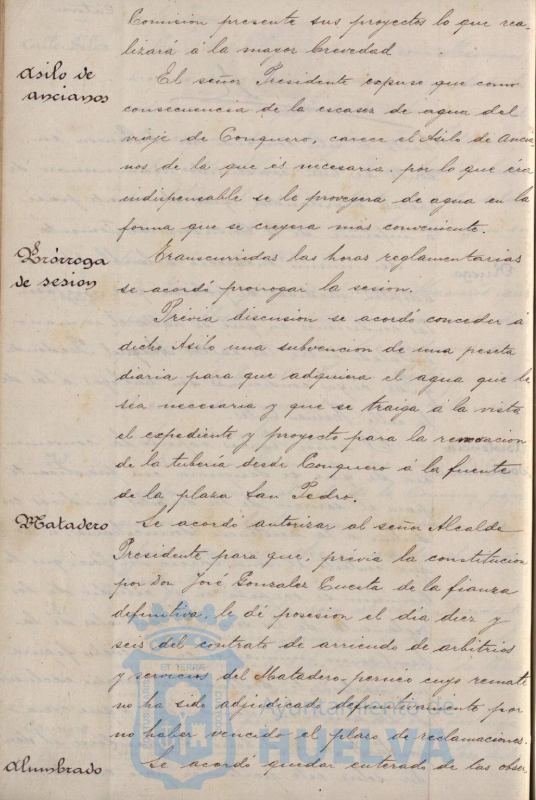 Comision presente sus proyectos lo que rea-
lizará á la mayor brevedad
Asilo de
ancianos
El señor Presidente expuso que como
consecuencia de la escasez de agua del
viaje de Conquero, carece el Asilo de Ancia-
nos de la que és necesaria, por lo que éra
indispensable se le proveyera de agua en la
forma que se creyera mas conveniente.
Prórroga
de sesion
Transcurridas las horas reglamentarias
se acordó prorrogar la sesion.
Prévia discusion se acordó conceder á
dicho Asilo una subvencion de una peseta
diaria para que adquiera el agua que le
séa necesaria y que se traiga á la vista
el expediente y proyecto para la renovacion
de la tubería desde Conquero á la fuente
de la plaza San Pedro.
Matadero
Se acordó autorizar al señor Alcalde
Presidente para que, prévia la constitucion
por Don José Gonzalez Cuesta de la fianza
definitiva, le dé posesion el dia diez y
seis del contrato de arriendo de arbitrios
y servicios del Matadero-pernio cuyo remate
no ha sido adjudicado definitivamente por
no haber vencido el plazo de reclamaciones.
Alumbrado
Se acordó quedar enterado de las obser
Ayuntamiento de
HUELVA